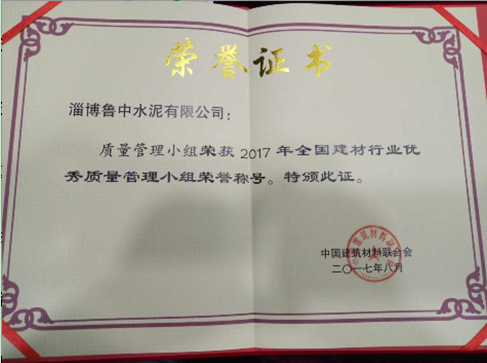 荣誉证书
淄博鲁中水泥有限公司：
质量管理小组荣获2017年全国建材行业优
秀质量管理小组荣誉称号。特颁此证。
中国建筑材料联合会
二〇一七年八月